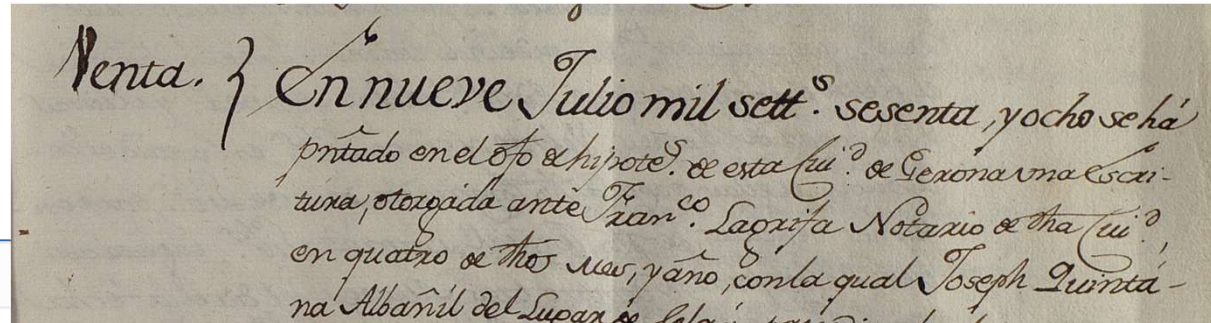 Venta. } En nueve Julio mil settˢ. sesenta, y ocho se há
pñtado en el ofº de hipoteˢ. de esta Ciuᵈ. de Gerona una Escri-
tura, otorgada ante Franᶜᵒ. Lagrifa Notario de dha Ciuᵈ.
en quatro de dhos mes, y año, con la qual Joseph Quintá-
na Albañil del Lugar de